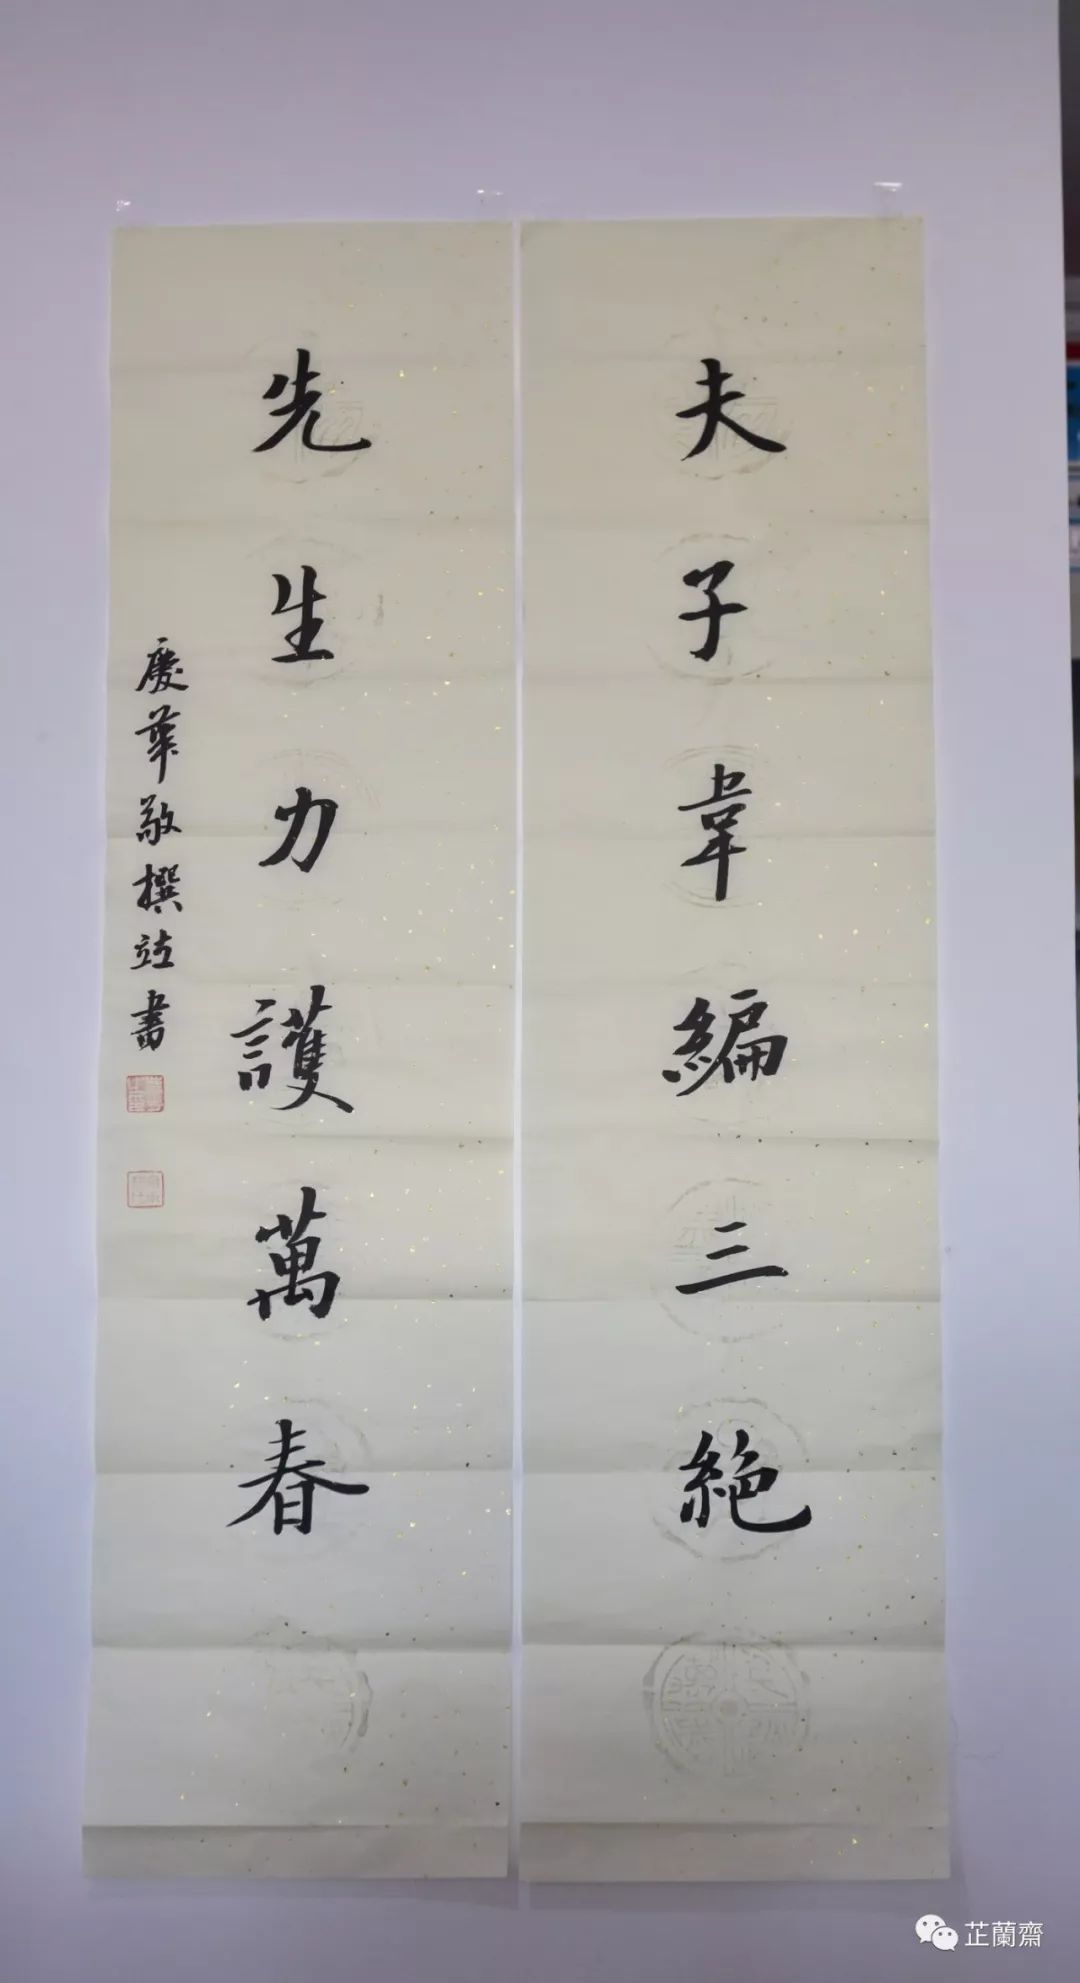 夫子韋編三絕
先生力護萬春
慶華敬撰並書
芷蘭齋